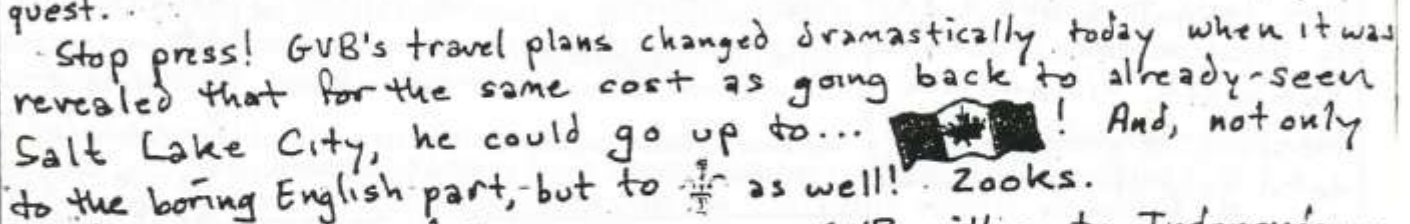 quest.
Stop press! GVB's travel plans changed dramastically today when it was
revealed that for the same cost as going back to already-seen
Salt Lake City, he could go up to... ! And, not only
to the boring English part, but to as well! Zooks.
to